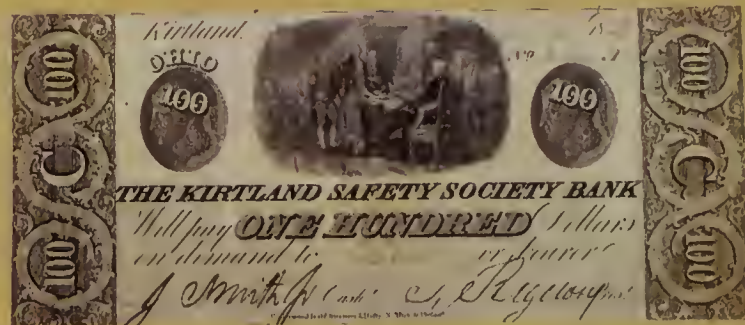 Kirtland
OHIO
100 100 100 100
C C
THE KIRTLAND SAFETY SOCIETY BANK
Will pay ONE HUNDRED Dollars
on demand to or bearer
J Smith Jr Cash S Rigdon
100 100